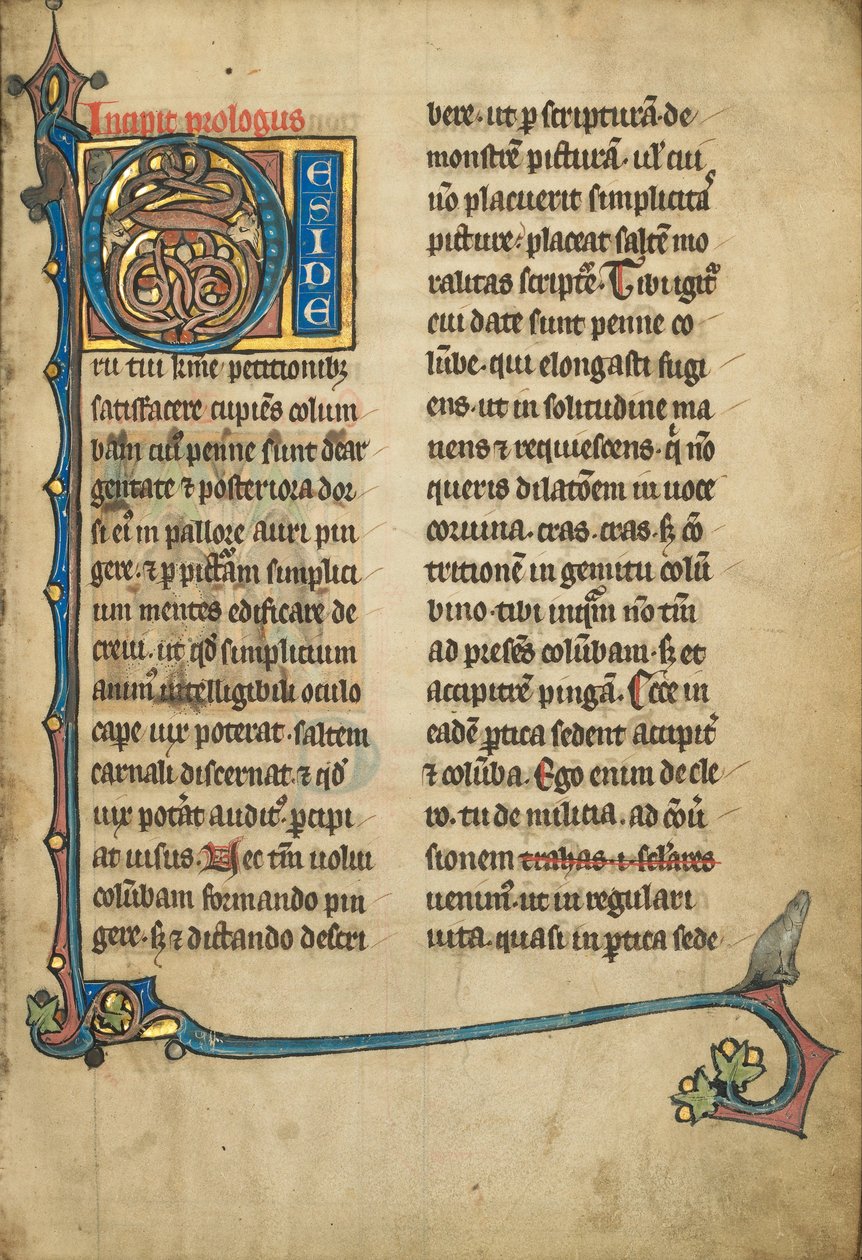 Incipit prologus
DESIDE
rii tui kr̄me petitionibꝫ
satisfacere cupiēs colum
bam cuiꝰ penne sunt dear
gentate ⁊ posteriora dor
si eiꝰ in pallore auri pin
gere. ⁊ ꝑ pictᵃam simplici
um mentes edificare de
creui. ut qd̄ simplicium
animꝰ intelligibili oculo
cape uix poterat. saltem
carnali discernat. ⁊ qd̄
uix pot̄at auditꝰ. ꝑcipi
at uisus. Nec tm̄ uolui
colūbam formando pin
gere. sꝫ ⁊ dictando descri
bere. ut ꝑ scripturā. de
monstrē picturā. ul̄ cui
nō placuerit simplicitas
picture: placeat saltē mo
ralitas scripte. Tibi igit̄
cui date sunt penne co
lūbe. qui elongasti fugi
ens. ut in solitudine ma
neres ⁊ requiescens. q̇ nō
queris dilatōem in uoce
coruina. cras. cras. sꝫ cō
tritionē in gemitu colū
bino. tibi inqᵃm nō tm̄
ad presēs colūbam. sꝫ et
accipitrē pingā. Ecce in
eadē ꝑtica sedent accipit̄
⁊ colūba. Ego enim de cle
ro. tu de milicia. ad cōu̇
sionem trahas .i. scl̄ares
uenimꝰ. ut in regulari
uita. quasi in ꝑtica sede